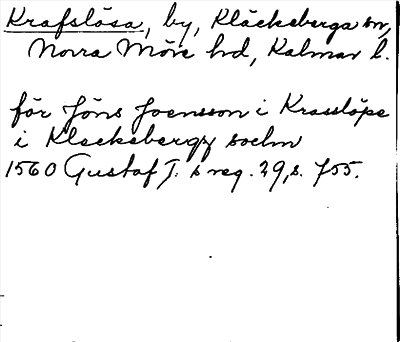 Krafslösa, by, Kläckeberga sn,
Norra Möre hd, Kalmar l.
för Jöns Joensson i Krasslöpe
i Kleckeberga sochn
1560 Gustaf I:s reg. 29, s. 755.